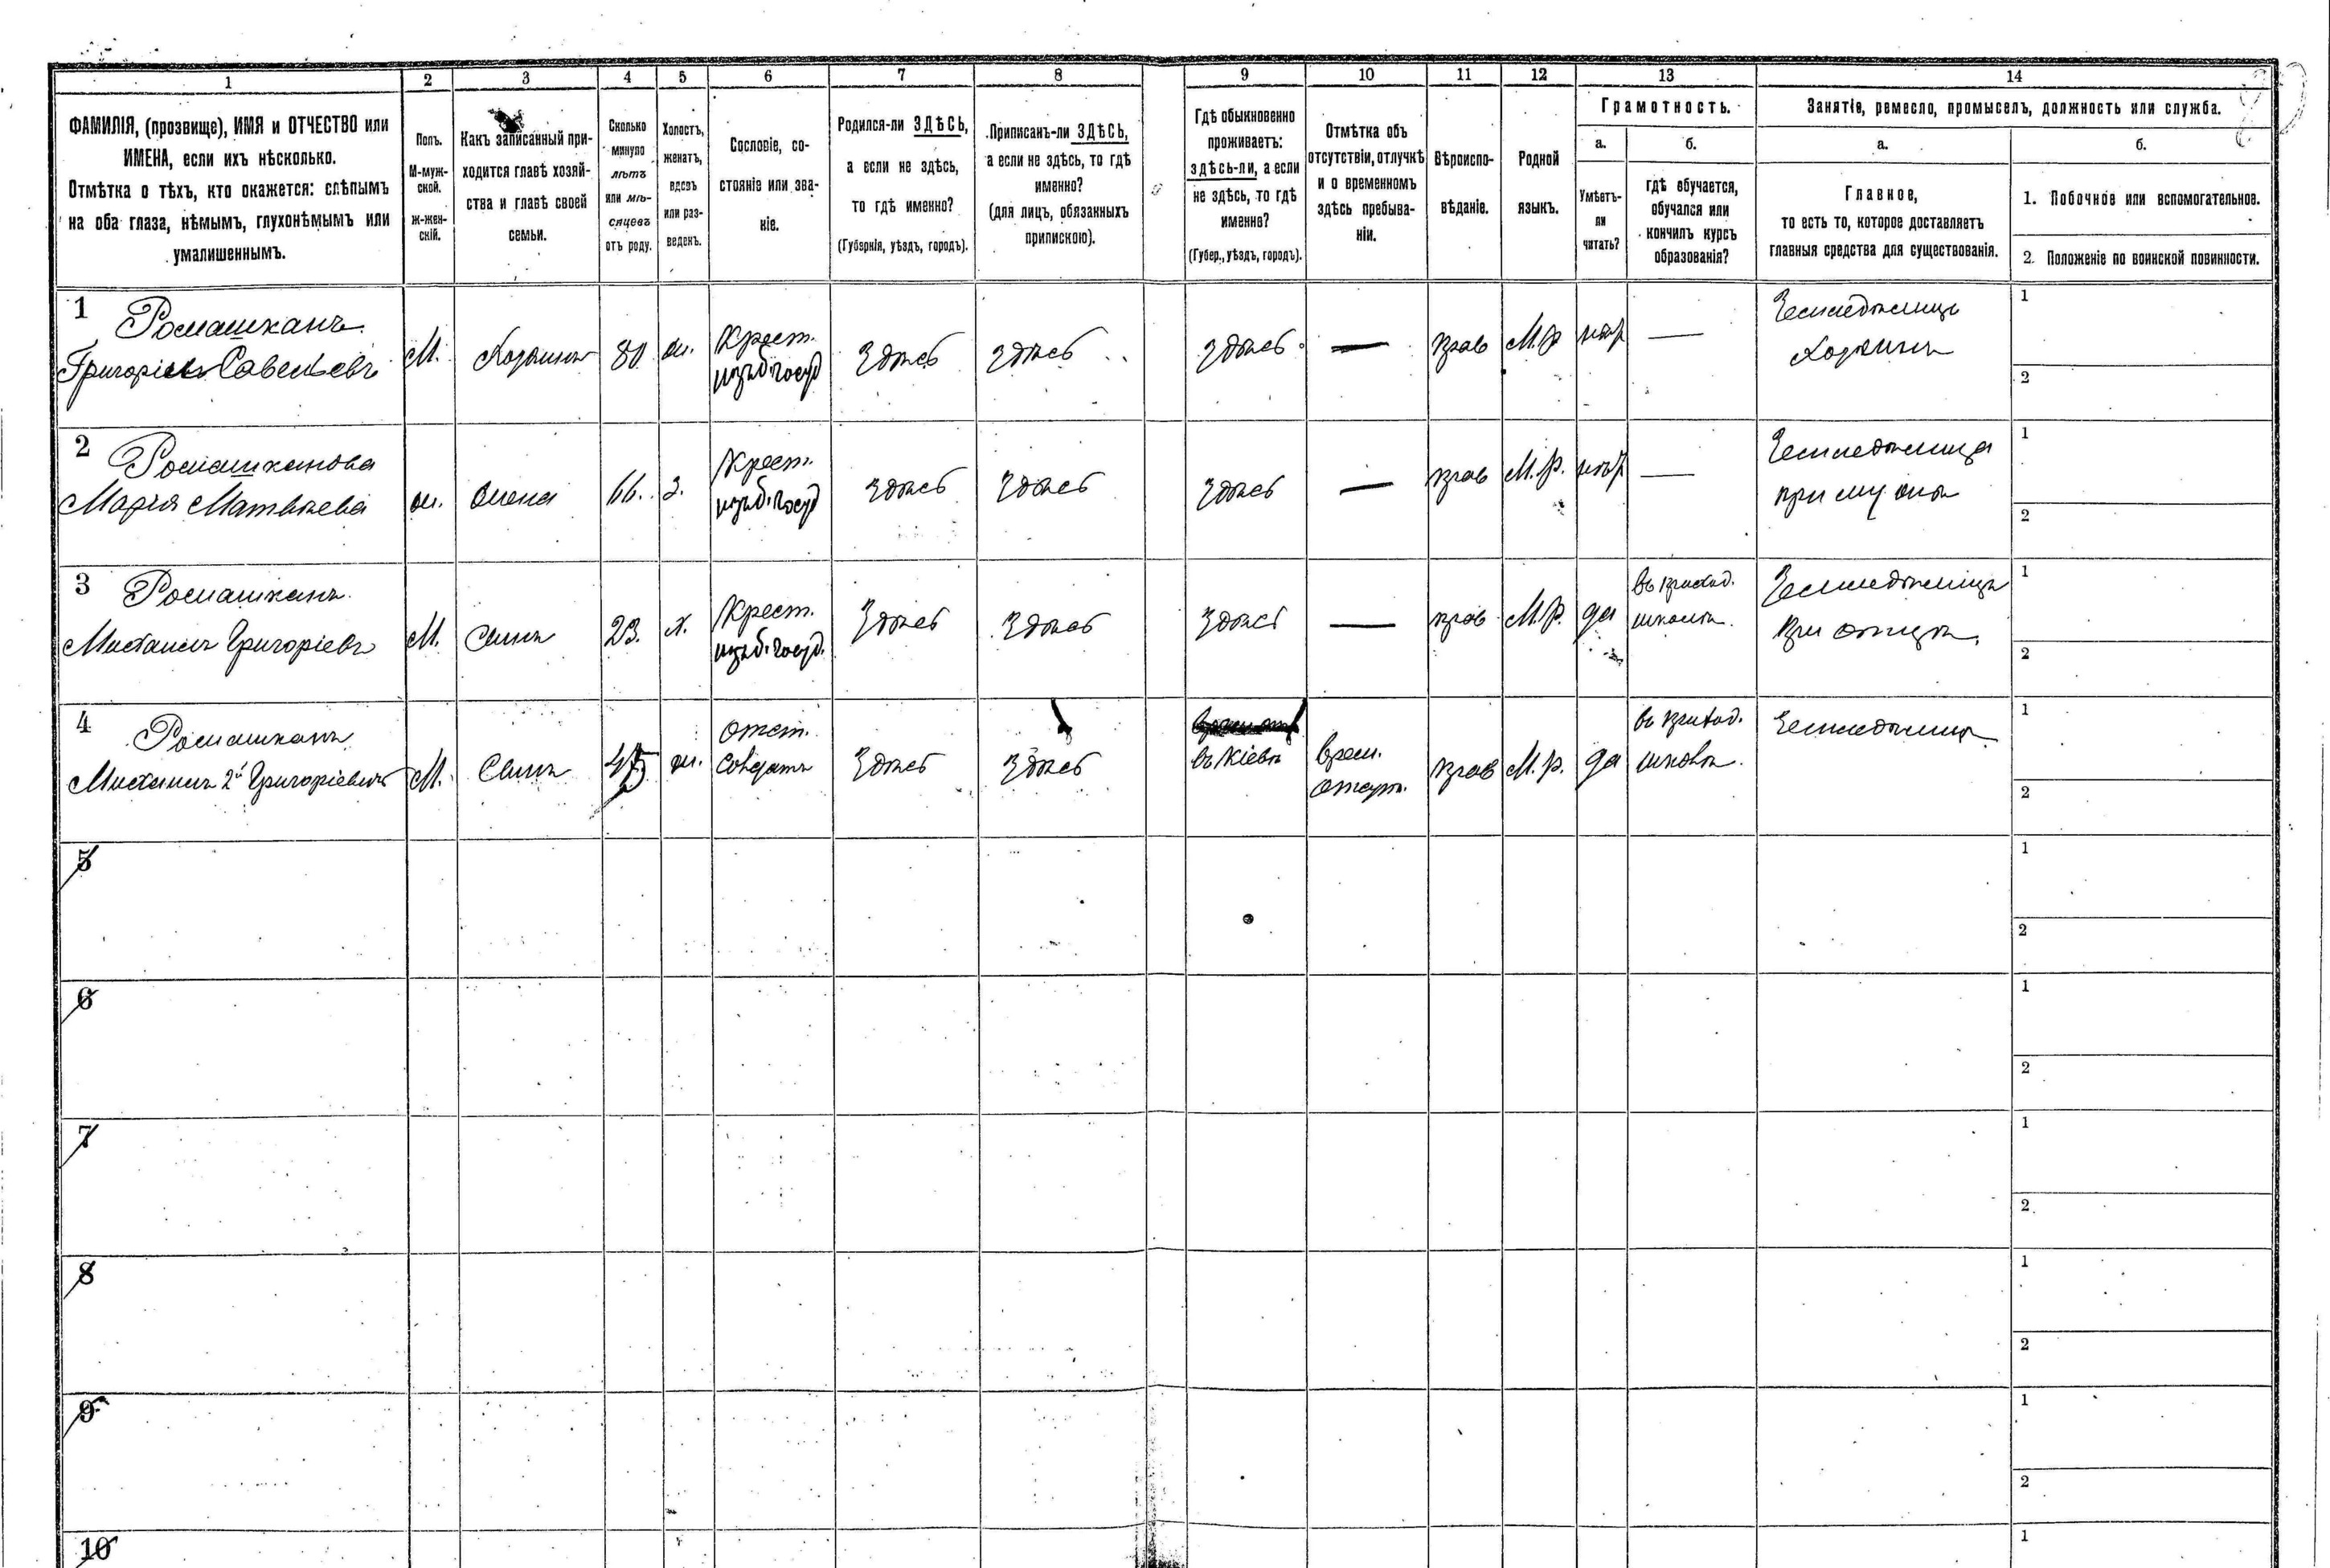 1
2
3
4
5
6
7
8
9
10
11
12
13
14
ФАМИЛІЯ, (прозвище), ИМЯ и ОТЧЕСТВО или
ИМЕНА, если ихъ нѣсколько.
Отмѣтка о тѣхъ, кто окажется: слѣпымъ
на оба глаза, нѣмымъ, глухонѣмымъ или
умалишеннымъ.
Полъ.
М-муж-
ской.
ж-жен-
скій.
Какъ записанный при-
ходится главѣ хозяй-
ства и главѣ своей
семьи.
Сколько
минуло
лѣтъ
или мѣ-
сяцевъ
отъ роду.
Холостъ,
женатъ,
вдовъ
или раз-
веденъ.
Сословіе, со-
стояніе или зва-
ніе.
Родился-ли ЗДѢСЬ,
а если не здѣсь,
то гдѣ именно?
(Губернія, уѣздъ, городъ).
Приписанъ-ли ЗДѢСЬ,
а если не здѣсь, то гдѣ
именно?
(для лицъ, обязанныхъ
припискою).
Гдѣ обыкновенно
проживаетъ:
здѣсь-ли, а если
не здѣсь, то гдѣ
именно?
(Губер., уѣздъ, городъ).
Отмѣтка объ
отсутствіи, отлучкѣ
и о временномъ
здѣсь пребыва-
ніи.
Вѣроиспо-
вѣданіе.
Родной
языкъ.
Грамотность.
а.
Умѣетъ-
ли
читать?
б.
гдѣ обучается,
обучался или
кончилъ курсъ
образованія?
Занятіе, ремесло, промыселъ, должность или служба.
а.
Главное,
то есть то, которое доставляетъ
главныя средства для существованія.
б.
1. Побочное или вспомогательное.
2. Положеніе по воинской повинности.
1
Ромашканъ
Григорій Савельевъ
М.
Хозяинъ
80
ж.
Крест.
изъ б. госуд
Здѣсь
Здѣсь
Здѣсь
—
прав
М.р
нѣт
—
Земледѣлецъ
Хозяинъ
1
2
2
Ромашканова
Марія Матвѣева
ж.
жена
66.
з.
Крест.
изъ б. госуд
Здѣсь
Здѣсь
Здѣсь
—
прав
М.р.
нѣт
—
Земледѣлица
при мужѣ
1
2
3
Ромашканъ
Михаилъ Григоріевъ
М.
Сынъ
23.
х.
Крест.
изъ б. госуд.
Здѣсь
Здѣсь
Здѣсь
—
прав
М.р.
да
въ приход.
школѣ.
Земледѣлецъ
при отцѣ
1
2
4
Ромашканъ
Михаилъ 2й Григоріевичъ
М.
Сынъ
45
ж.
отст.
Солдатъ
Здѣсь
Здѣсь
въ Кіевѣ
врем.
отсут.
прав
М.р.
да
въ приход.
школѣ.
Земледѣлецъ
1
2
5
1
2
6
1
2
7
1
2
8
1
2
9
1
2
10
1